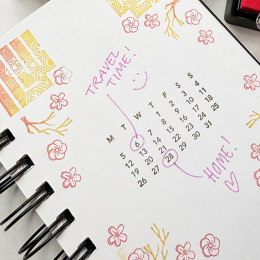 TRAVEL
TIME!
M T W T F S S
1 2 3 4
5 6 7 8 9 10 11
12 13 14 15 16 17 18
19 20 21 22 23 24 25
26 27 28 29 30 31
HOME!